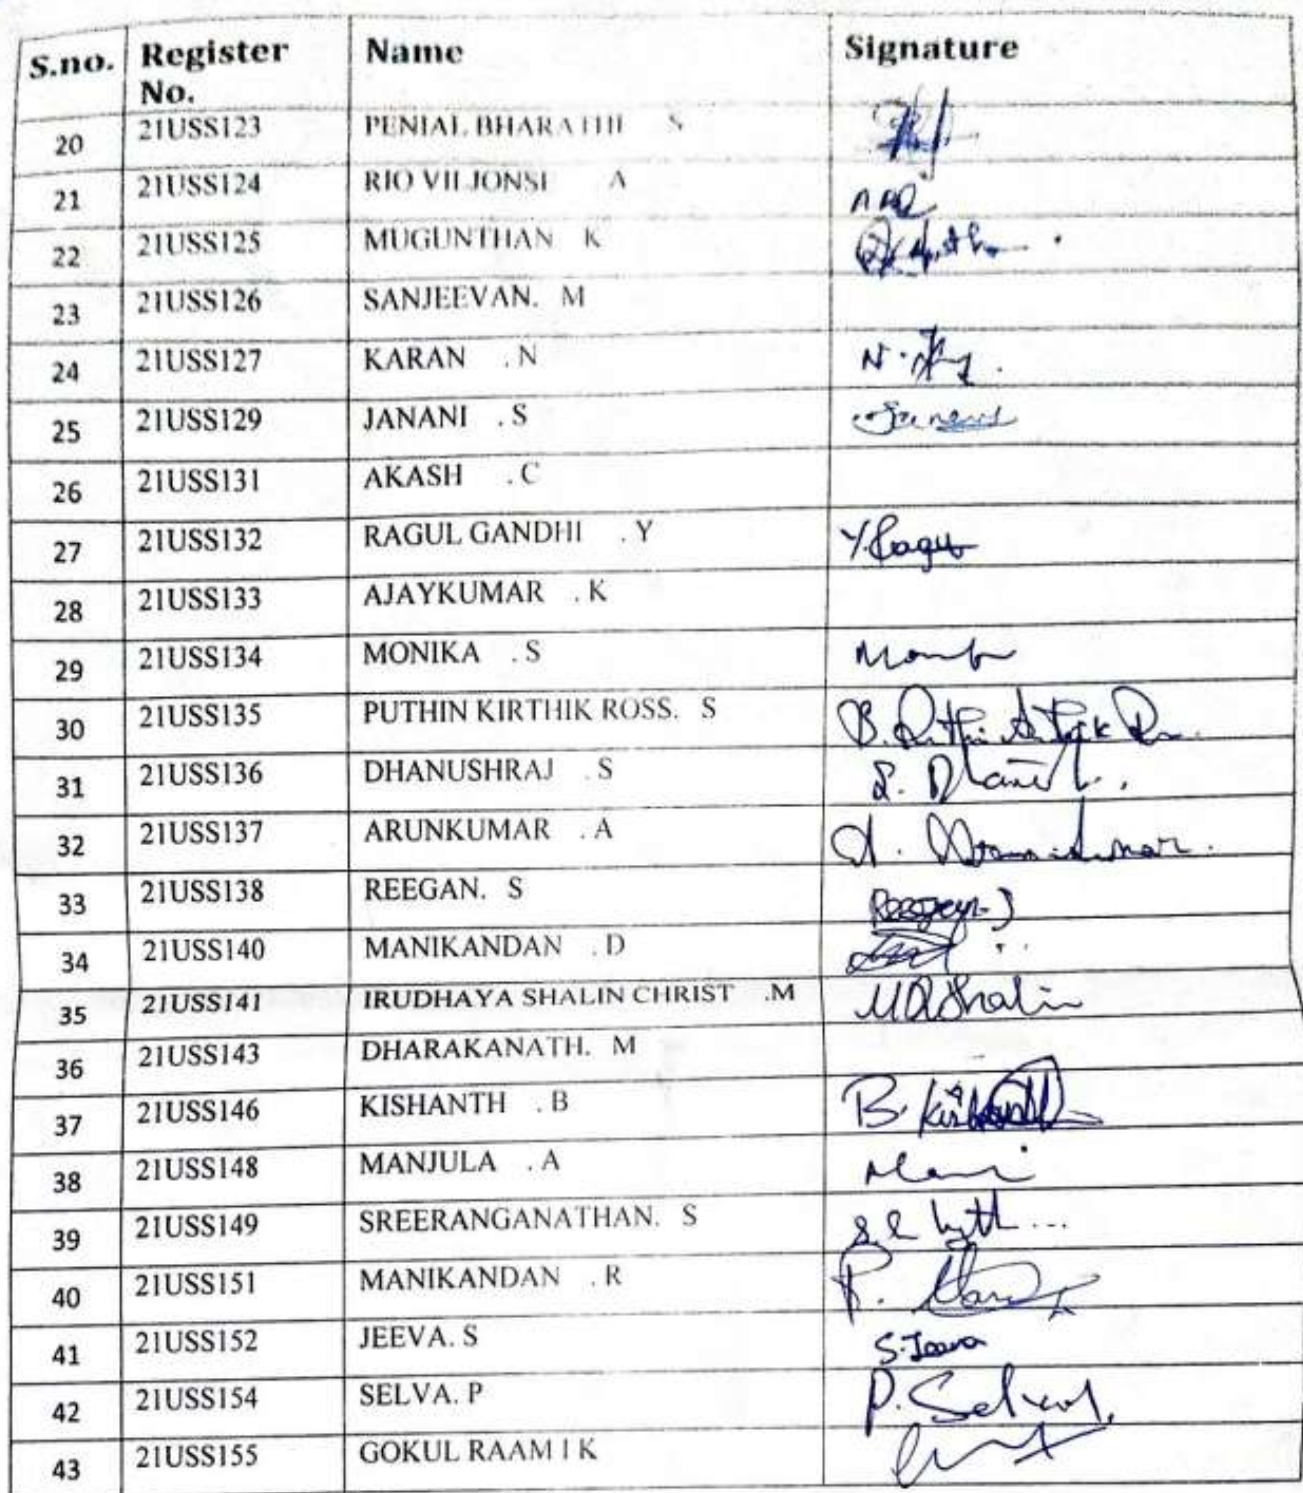 S.no. Register No. Name Signature
20 21USS123 PENIAL BHARATHI S
21 21USS124 RIO VILJONSI A
22 21USS125 MUGUNTHAN K
23 21USS126 SANJEEVAN. M
24 21USS127 KARAN .N N.
25 21USS129 JANANI .S
26 21USS131 AKASH .C
27 21USS132 RAGUL GANDHI .Y Y.Ragu
28 21USS133 AJAYKUMAR .K
29 21USS134 MONIKA .S
30 21USS135 PUTHIN KIRTHIK ROSS. S
31 21USS136 DHANUSHRAJ .S
32 21USS137 ARUNKUMAR .A
33 21USS138 REEGAN. S
34 21USS140 MANIKANDAN .D
35 21USS141 IRUDHAYA SHALIN CHRIST .M
36 21USS143 DHARAKANATH. M
37 21USS146 KISHANTH .B B.
38 21USS148 MANJULA .A
39 21USS149 SREERANGANATHAN. S
40 21USS151 MANIKANDAN .R
41 21USS152 JEEVA. S S.Jeeva
42 21USS154 SELVA. P P.
43 21USS155 GOKUL RAAM I K